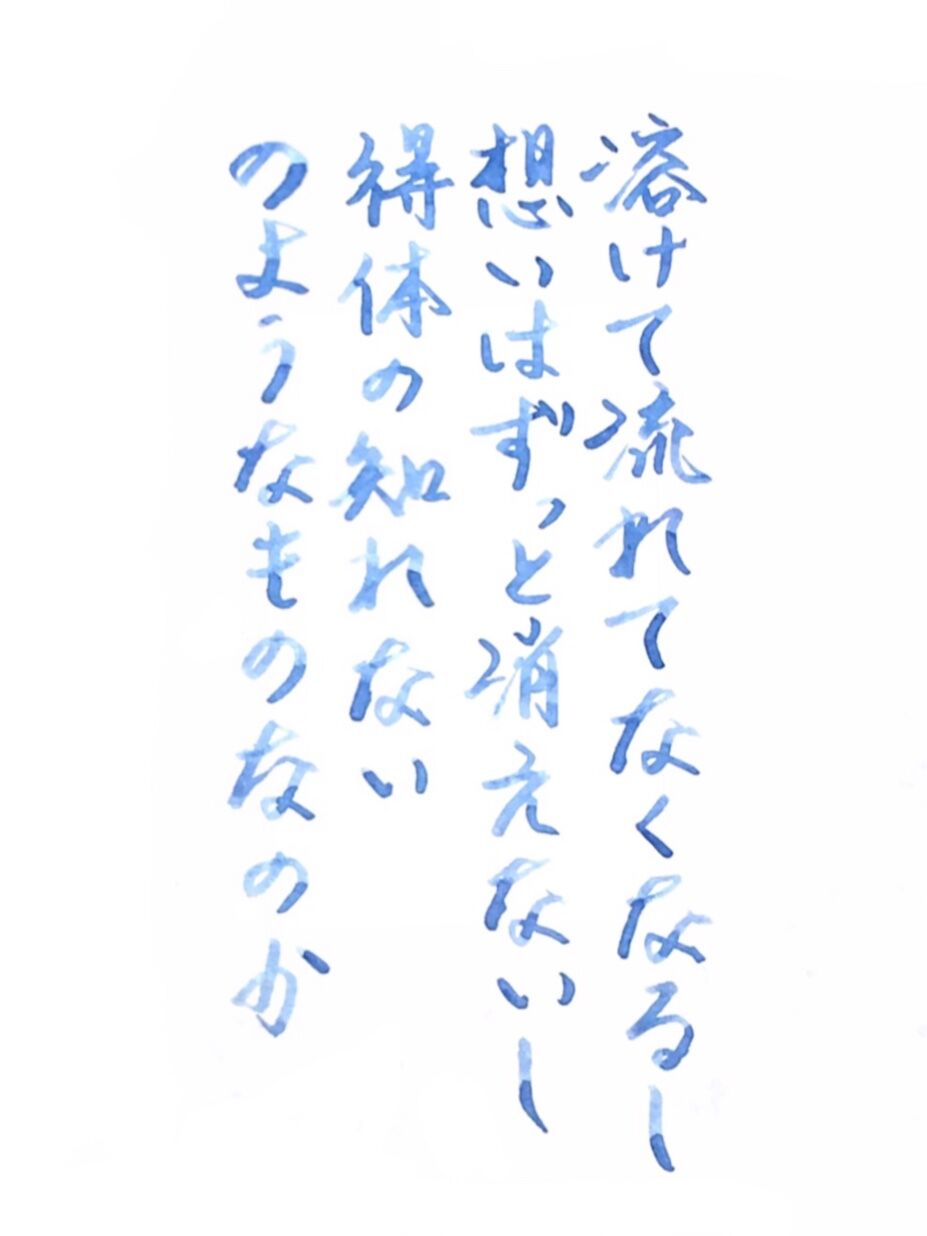 溶けて流れてなくなるし
想いはずっと消えないし
得体の知れない
のようなものなのか